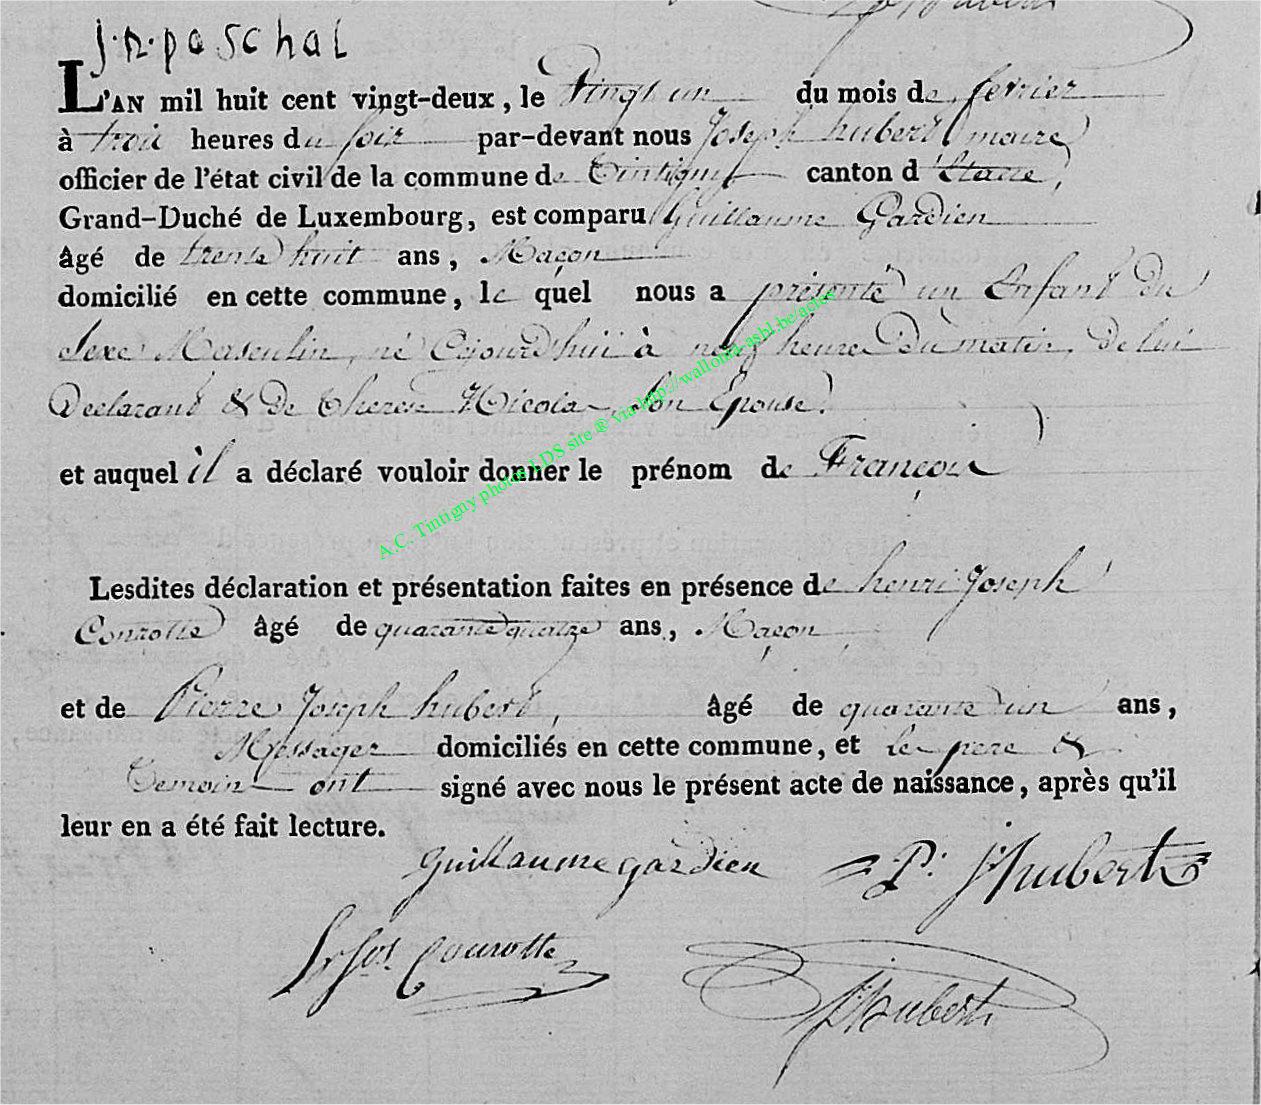 j.n. paschal
L'AN mil huit cent vingt-deux, le Vingt un du mois de fevrier
à trois heures du soir par-devant nous Joseph hubert maire
officier de l'état civil de la commune de Tintigny canton d'Etalle,
Grand-Duché de Luxembourg, est comparu Guillaume Gardien
âgé de trente huit ans, Maçon
domicilié en cette commune, le quel nous a présenté un Enfant du
Sexe Masculin, né Cejourd'hui à neuf heures du matin, de lui
Declarant & de Therese Nicolas, Son Epouse.
et auquel il a déclaré vouloir donner le prénom de François
A.C. Tintigny photos LDS site @ via http://wallonia-asbl.be/actes
Lesdites déclaration et présentation faites en présence de henri Joseph
Conrotte âgé de quarante quatre ans, Maçon
et de Pierre Joseph hubert, âgé de quarante un ans,
Messager domiciliés en cette commune, et le pere &
Temoins ont signé avec nous le présent acte de naissance, après qu'il
leur en a été fait lecture.
guillaume gardien P. J. hubert
Jos. Conrotte
J. hubert